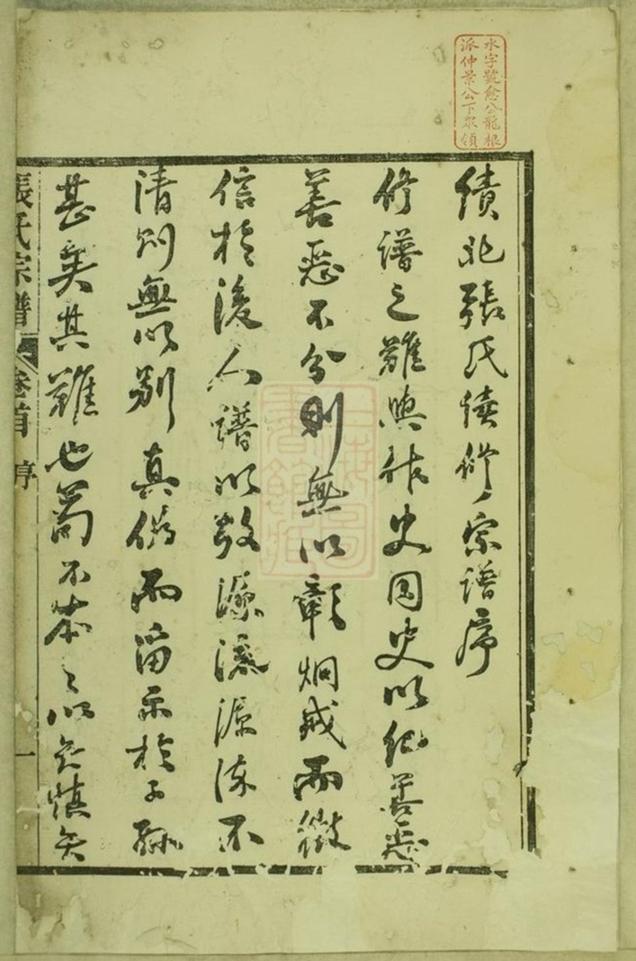 水字號愈公龍根
派仲景公下眾領
績北張氏續修宗譜序
修譜之難與作史同史以紀善惡
善惡不分則無以彰炯戒而徵
信於後人譜以敘源流源流不
清則無以別真偽而留示於子孫
甚矣其難也苟不本之以矣慎矢
張氏宗譜 卷首 序 一